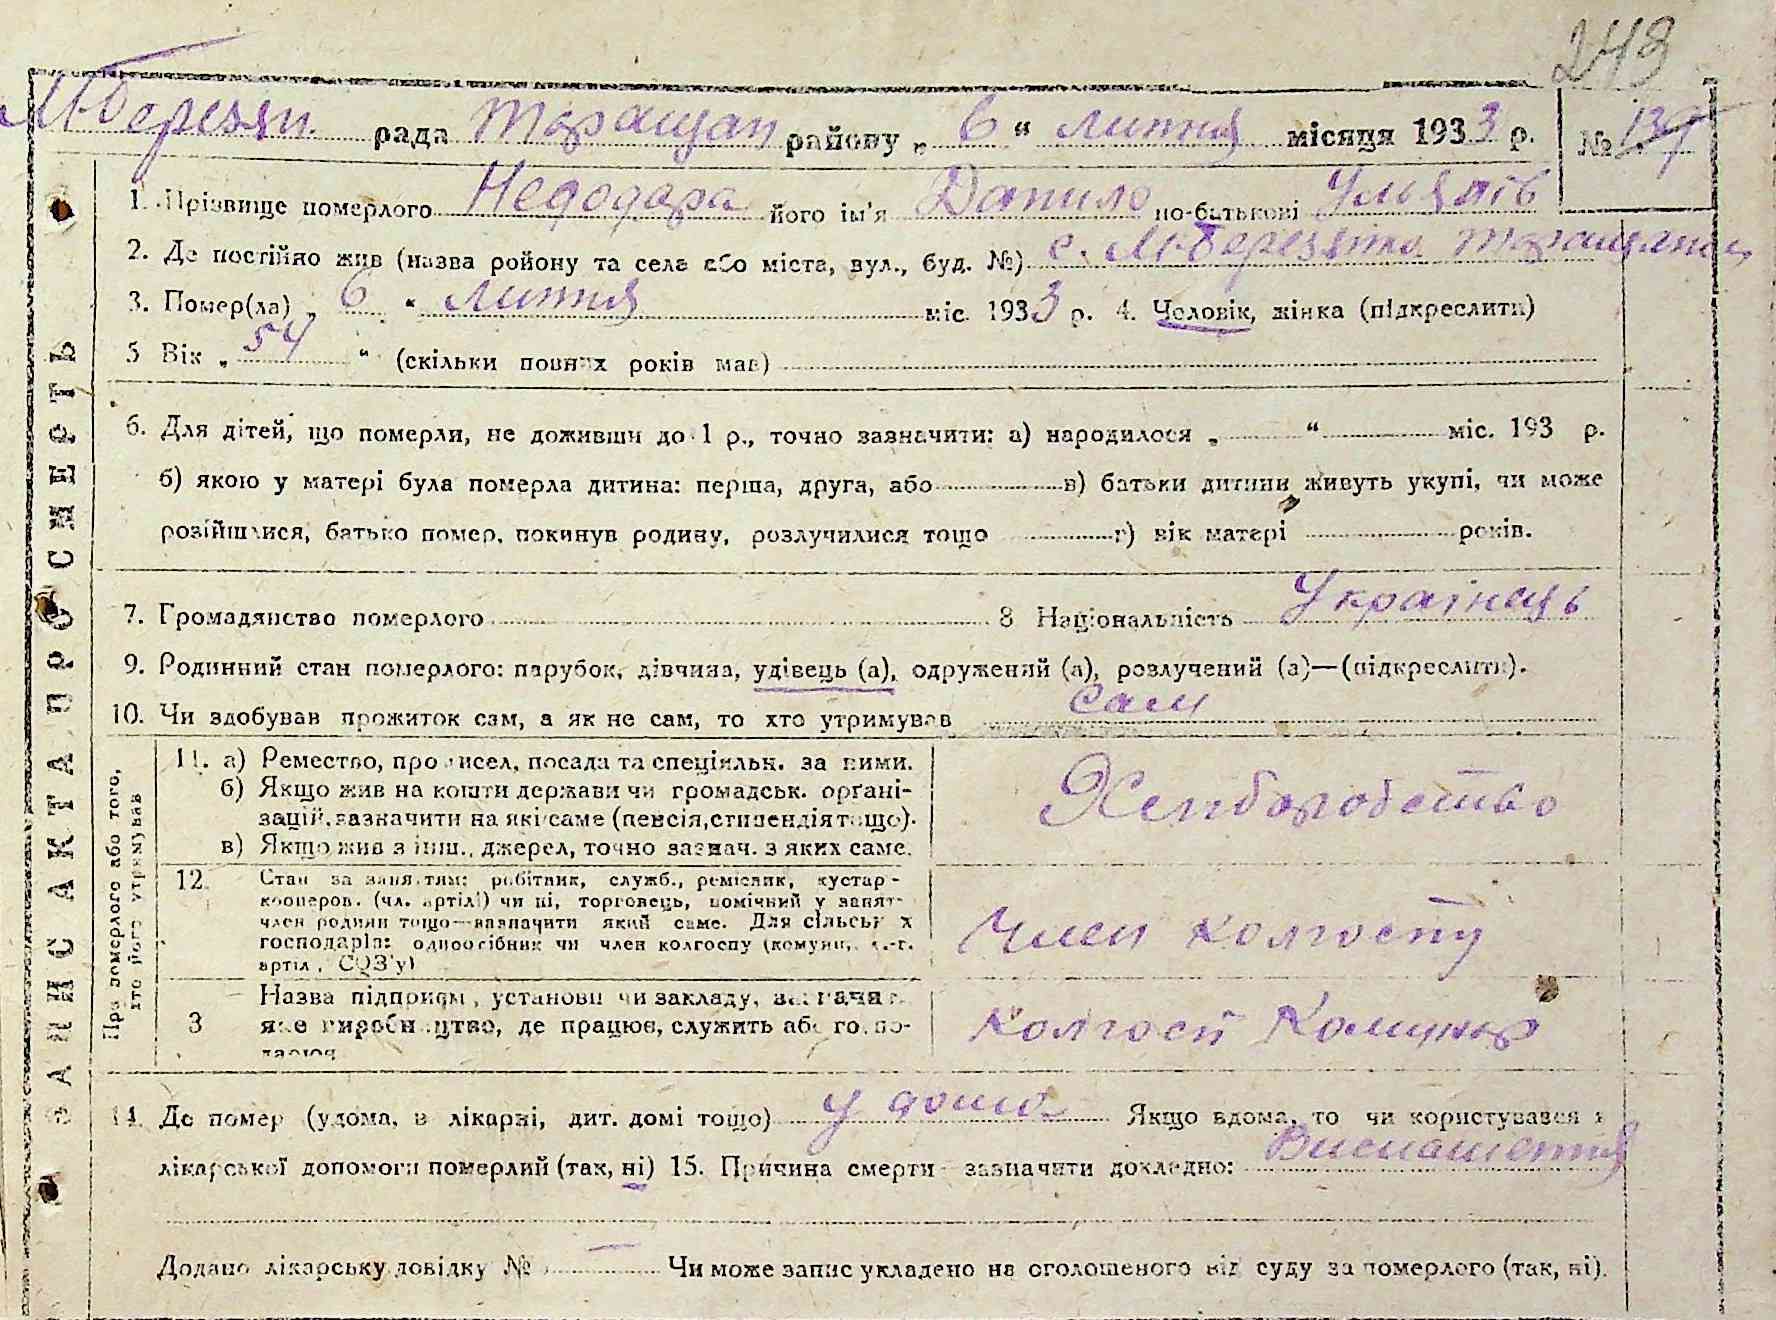 249
М-Березян. рада Таращан району „ 6 “ липня місяця 1933 р. № 139
ЗАПИС АКТА ПРО СМЕРТЬ
1. Прізвище померлого Недодара його ім'я Данило по-батькові
2. Де постійно жив (назва ройону та села або міста, вул., буд. №) с. М-Березянка Таращанськ
3. Помер(ла) „ 6 “ липня міс. 1933 р. 4. Человік, жінка (підкреслити)
5 Вік „ 54 “ (скільки повних років мав)
6. Для дітей, що померли, не доживши до 1 р., точно зазначити: а) народилося „ “ міс. 193 р.
б) якою у матері була померла дитина: перша, друга, або в) батьки дитини живуть укупі, чи може
розійшлися, батько помер, покинув родину, розлучилися тощо г) вік матері років.
7. Громадянство померлого 8 Національність Українець
9. Родинний стан померлого: парубок, дівчина, удівець (а), одружений (а), розлучений (а)—(підкреслити).
10. Чи здобував прожиток сам, а як не сам, то хто утримував сам
Про померлого або того, хто його утримував
11. а) Ремество, промисел, посада та спеціяльн. за ними.
б) Якщо жив на кошти держави чи громадськ. організацій, зазначити на які саме (пенсія, стипендія тощо).
в) Якщо жив з інш., джерел, точно зазнач. з яких саме.
Хлиборобство
12. Стан за заняттям: робітник, служб., ремісник, кустар-
кооперов. (чл. артілі) чи ні, торговець, помічний у занят-
член родини тощо—зазначити який саме. Для сільськ х
господарів: одноосібник чи член колгоспу (комуни, с.-г.
артіл , СОЗ'у)
Член колгоспу
3 Назва підприєм , установи чи закладу, зазнача
яке виробництво, де працює, служить або госпо-
дарює
колгосп Комунар
14. Де помер (удома, в лікарні, дит. домі тощо) у дома Якщо вдома, то чи користувався з
лікарської допомоги померлий (так, ні) 15. Причина смерти зазначити докладно: Виснаження
Додано лікарську довідку № — Чи може запис укладено на оголошеного від суду за померлого (так, ні).